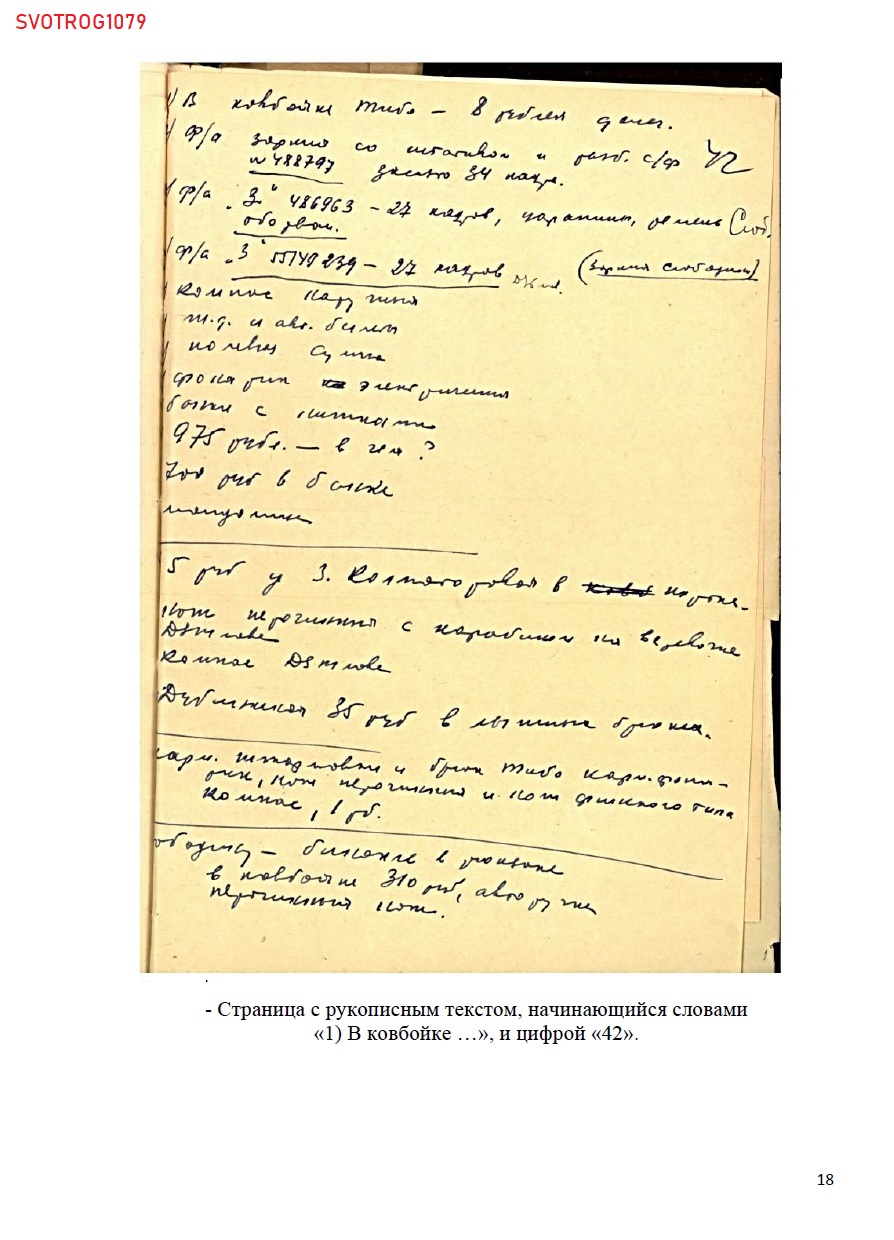 SVOTROG1079
1) В ковбойке Тибо – 8 рублей денег.
ф/а зоркий со штативом и разб. с/ф 42
№ 488797 заснято 34 кадра.
ф/а „З." 486963 – 27 кадров, царапины, ремень Слоб.
оборван.
ф/а „З" 55149239 – 27 кадров (зоркий слободин)
компас наручный
ж.д. и авт. билеты
полевая сумка
фонарик электрический
банки с нитками
975 рубл. – в чем?
700 руб в банке
5 руб у З. Колмогоровой в
нож перочинный с карабином на веревочке
Дятлова
компас Дятлова
Дубининой 35 руб в брюках.
карм. штормовки и брюк Тибо карм. фона-
рик, нож перочинный и нож финского типа
компас, 1 рб.
в рюкзаке
в ковбойке 310 руб, авторучка
перочинный нож.
- Страница с рукописным текстом, начинающийся словами
«1) В ковбойке …», и цифрой «42».
18